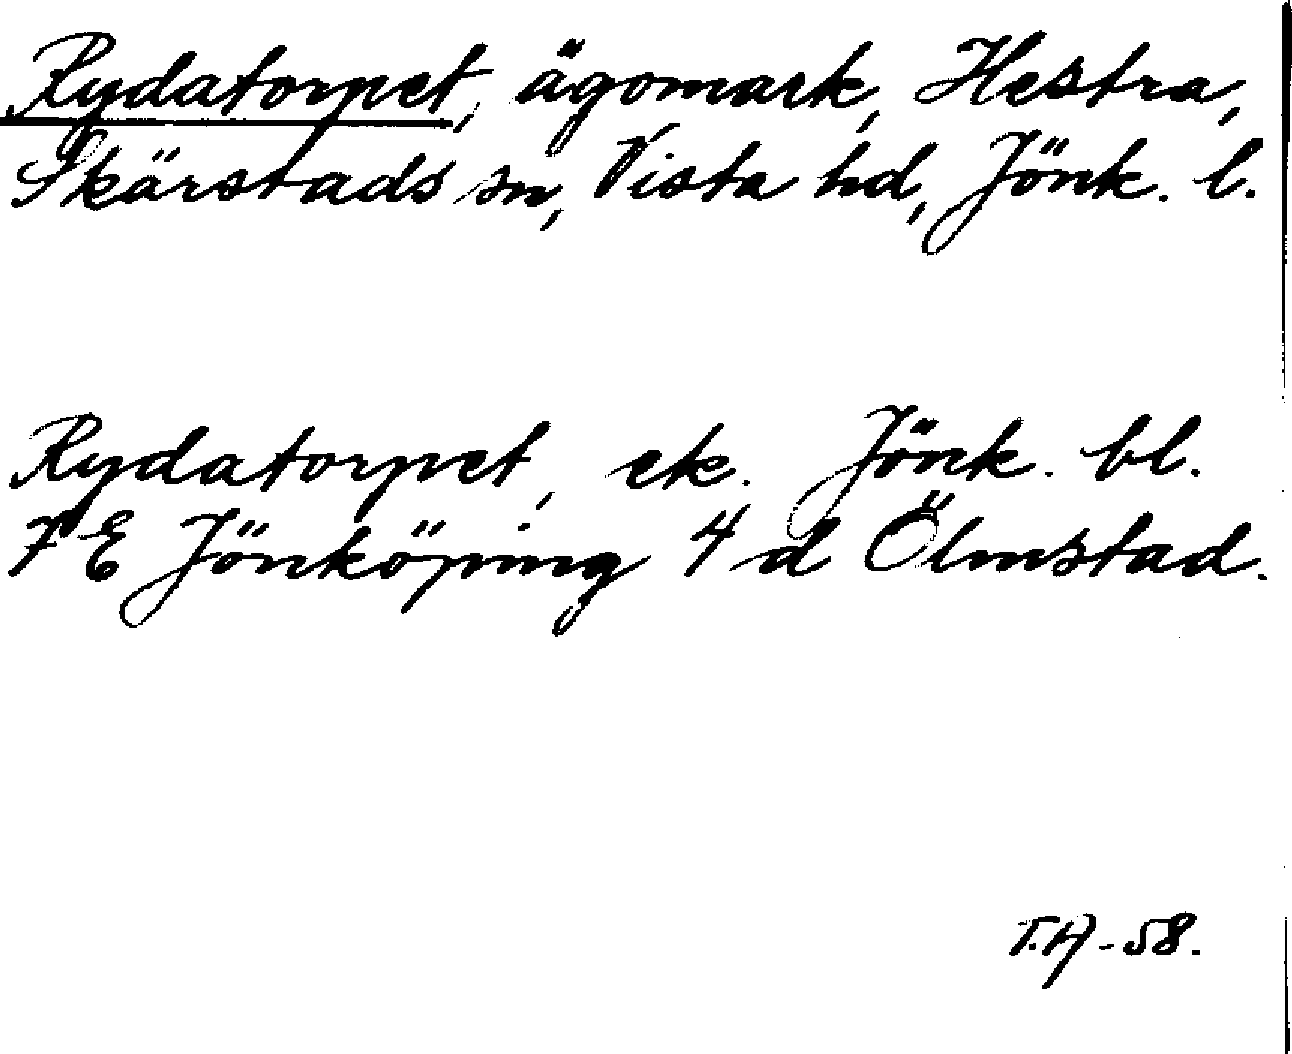 Rydatorpet, ägomark, Hestra,
Skärstads sn, Vista hd, Jönk. l.
Rydatorpet, ek. Jönk. bl.
7 E Jönköping 4 d Ölmstad.
T.A-58.